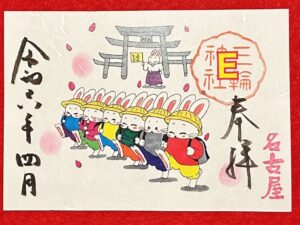 奉拝
名古屋
三輪
神社
E
令和六年四月